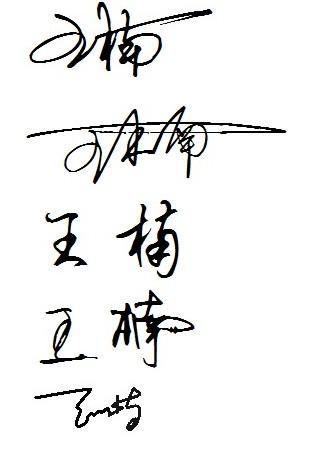 王楠
王楠
王楠
王楠